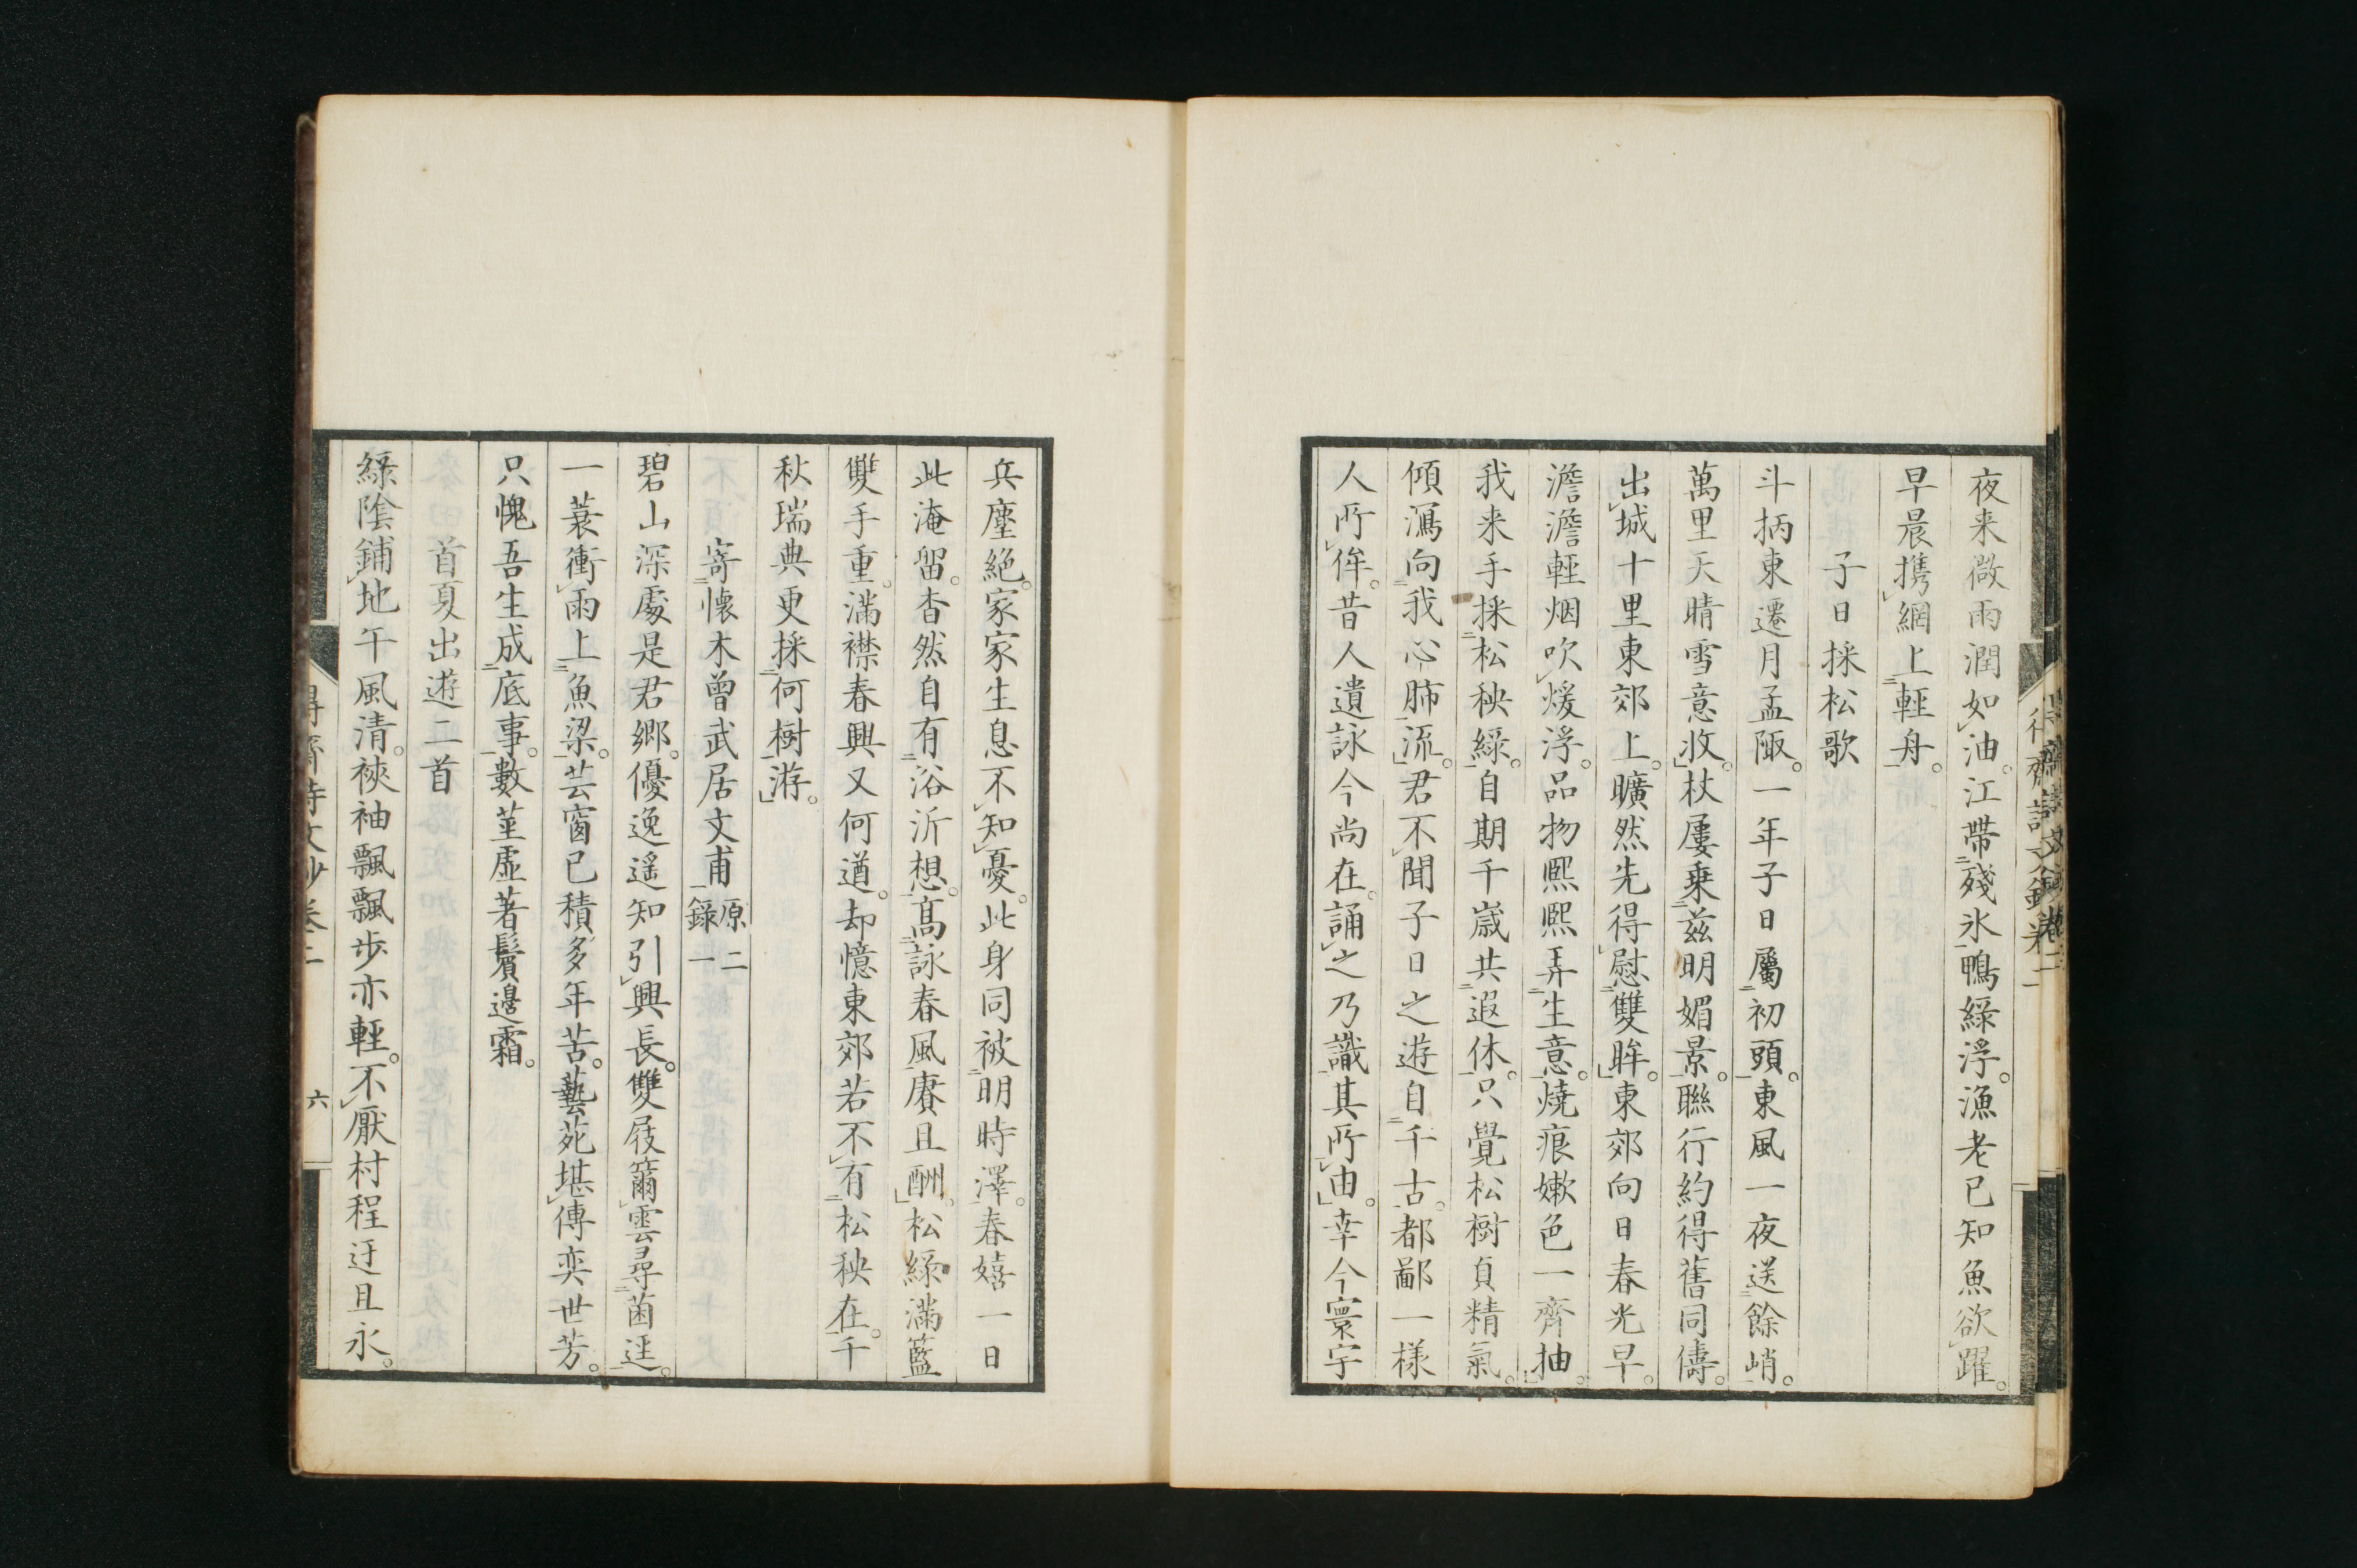 夜来微雨潤如油。江帶殘氷鴨綠浮。漁老已知魚欲躍。
早晨携網上輕舟。
子日採松歌
斗柄東遷月孟陬。一年子日屬初頭。東風一夜送餘峭。
萬里天晴雪意收。杖屢乗茲明媚景。聯行約得舊同儔。
出城十里東郊上。曠然先得慰雙眸。東郊向日春光早。
澹澹輕烟吹煖浮。品物熙熙弄生意。燒痕嫩色一齊抽。
我来手採松秧綠。自期千歳共遐休。只覺松樹負精氣。
傾瀉向我心肺流。君不聞子日之遊自千古。都鄙一樣
人所侔。昔人遺詠今尚在。誦之乃識其所由。幸今寰宇
兵塵絶。家家生息不知憂。此身同被明時澤。春嬉一日
此淹留。杳然自有浴沂想。高詠春風賡且酬。松綠滿籃
雙手重。滿襟春興又何遒。却憶東郊若不有松秧在。千
秋瑞典更採何樹游。
寄懷木曽武居文甫 原二録一
碧山深處是君郷。優逸遥知引興長。雙屐籋雲尋菌逕。
一蓑衝雨上魚梁。芸窗已積多年苦。藝苑堪傳奕世芳。
只愧吾生成底事。數莖虚著鬢邊霜。
首夏出遊二首
綠陰鋪地午風清。裌袖飄飄歩亦輕。不厭村程迂且永。
六